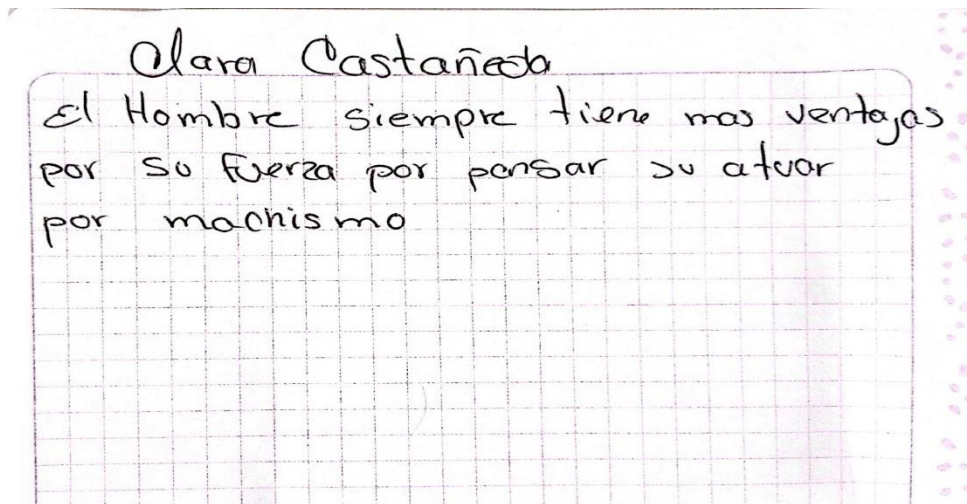 Clara Castañeda
El Hombre siempre tiene mas ventajas
por su fuerza por pensar su atuar
por machismo